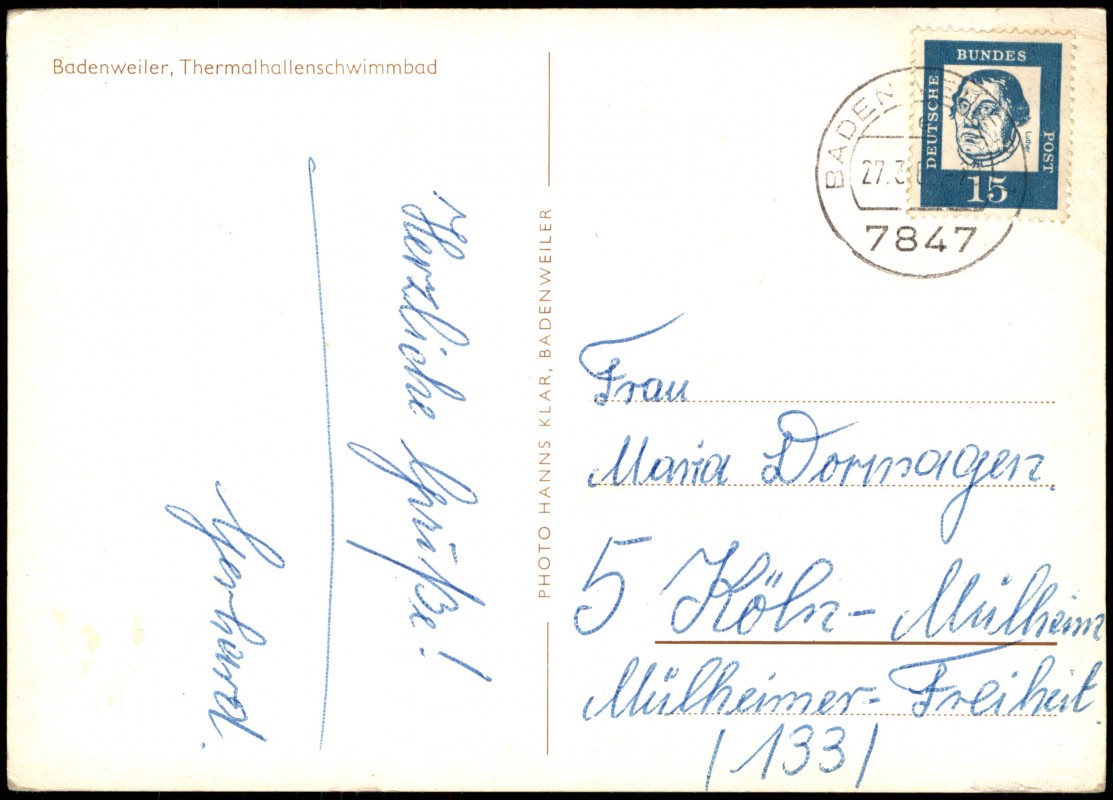 Badenweiler, Thermalhallenschwimmbad
Herzliche Grüße!
Gerhard.
PHOTO HANNS KLAR, BADENWEILER
DEUTSCHE
BUNDES
POST
Luther
15
27.3.
7847
Frau
Maria Dormagen.
5 Köln-Mülheim
Mülheimer-Freiheit.
/133/